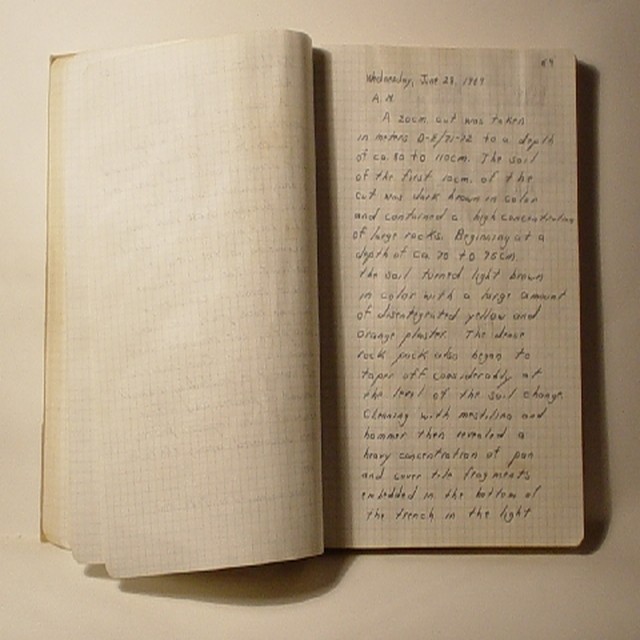 89
Wednesday, June 28, 1989
A.M.
A 20cm. cut was taken
in meters D-E/71-72 to a depth
of ca. 80 to 110cm. The soil
of the first 10cm. of the
cut was dark brown in color
and contained a high concentration
of large rocks. Beginning at a
depth of ca. 70 to 75cm.
the soil turned light brown
in color with a large amount
of disintegrated yellow and
orange plaster. The dense
rock pack also began to
taper off considerably at
the level of the soil change.
Cleaning with mestilino and
hammer then revealed a
heavy concentration of pan
and cover tile fragments
embedded in the bottom of
the trench in the light